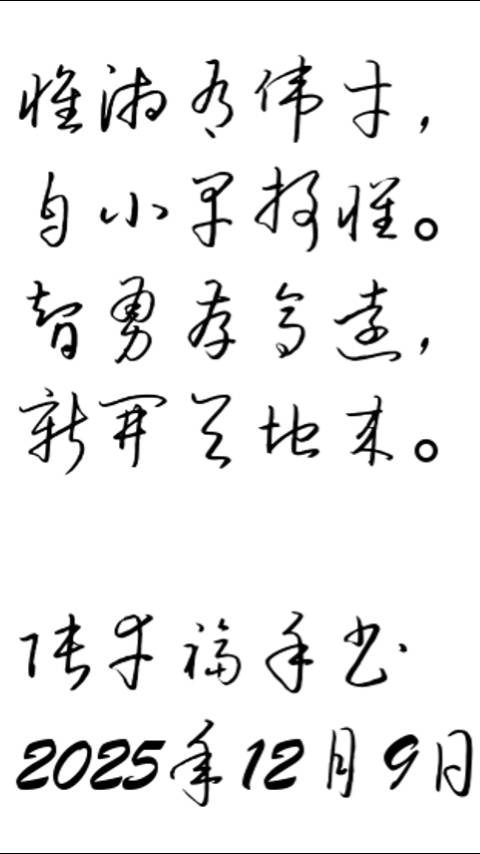 惟湘伟才，
自小早。
智勇存高远，
新开天地来。
张福手书
2025年12月9日